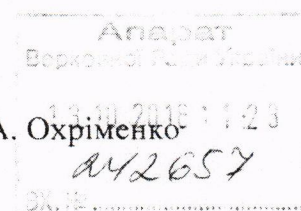 Апарат
Верховної Ради України
13.10.2016 11:23
А. Охріменко
242657
ЭК. №